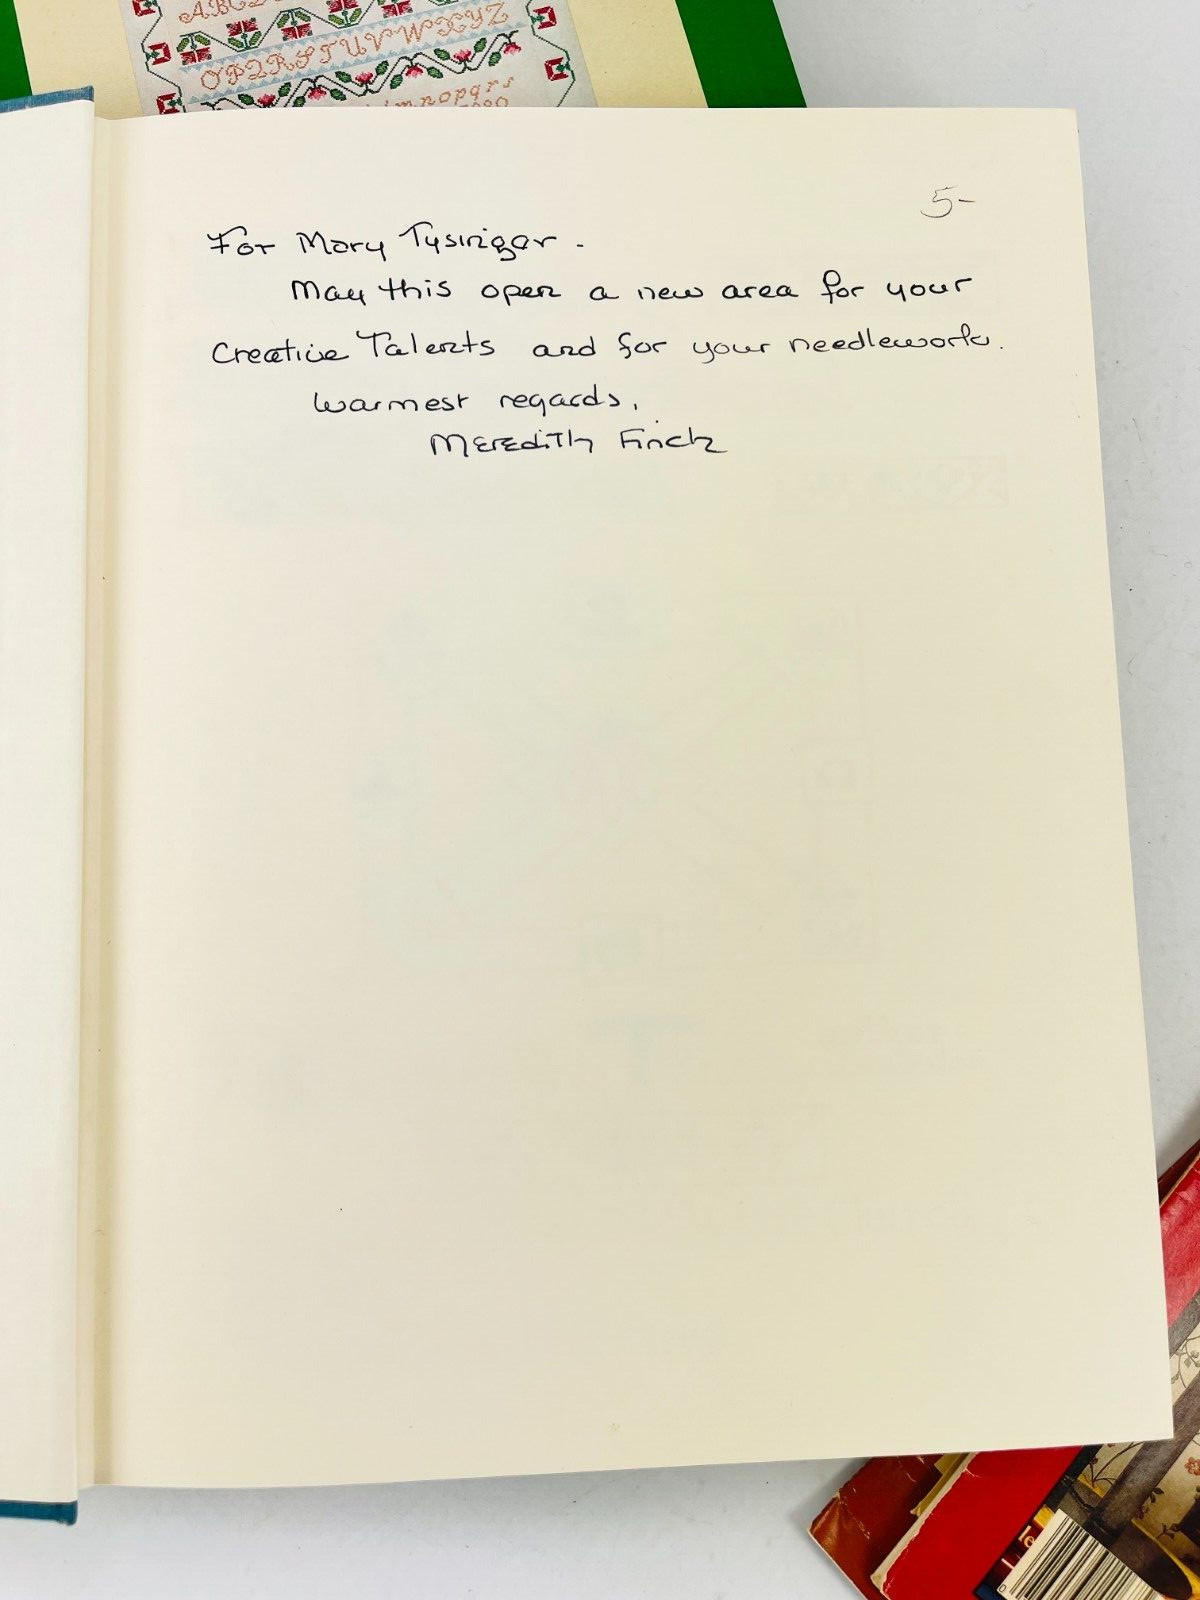 OPQRSTUVWXYZ
5-
For Mary Tysinger -
May this open a new area for your
Creative Talents and for your needlework.
Warmest regards,
Meredith Finch